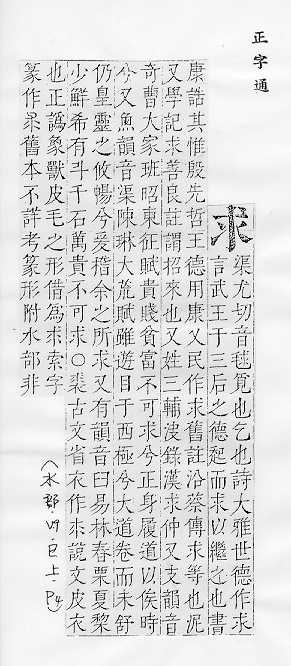 正字通
求
渠尤切音毬覓也乞也詩大雅世德作求
言武王于三后之德起而求以繼之也書
康誥其惟殷先哲王德用康乂民作求舊註沿蔡傳求等也泥
又學記求善良註謂招來也又姓三輔决錄漢求仲又支韻音
奇曹大家班昭東征賦貴賤貧富不可求兮正身履道以俟時
兮又魚韻音渠陳琳大荒賦雖遊目于西極兮大道卷而未舒
仍皇靈之攸暢兮爰稽余之所求又有韻音臼易林春栗夏棃
少鮮希有斗千石萬貴不可求○裘古文省衣作求說文皮衣
也正譌象獸皮毛之形借為求索字
篆作舊本不詳考篆形附水部非
(水部 巳上 P4)